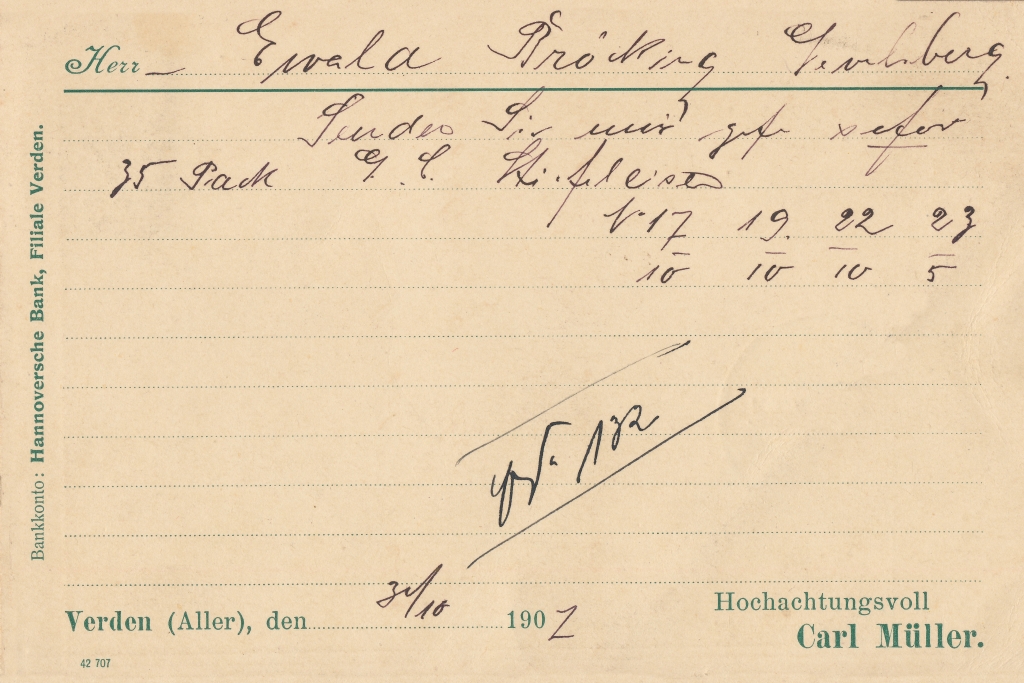 Herr Ewald Bröcking Gevelsberg
Senden Sie mir gefl sofort
35 Pack G. C. Stiefeleisen
N 17 19. 22 23
10 10 10 5
132
Verden (Aller), den 31/10 1907
Hochachtungsvoll
Carl Müller.
42 707
Bankkonto: Hannoversche Bank, Filiale Verden.